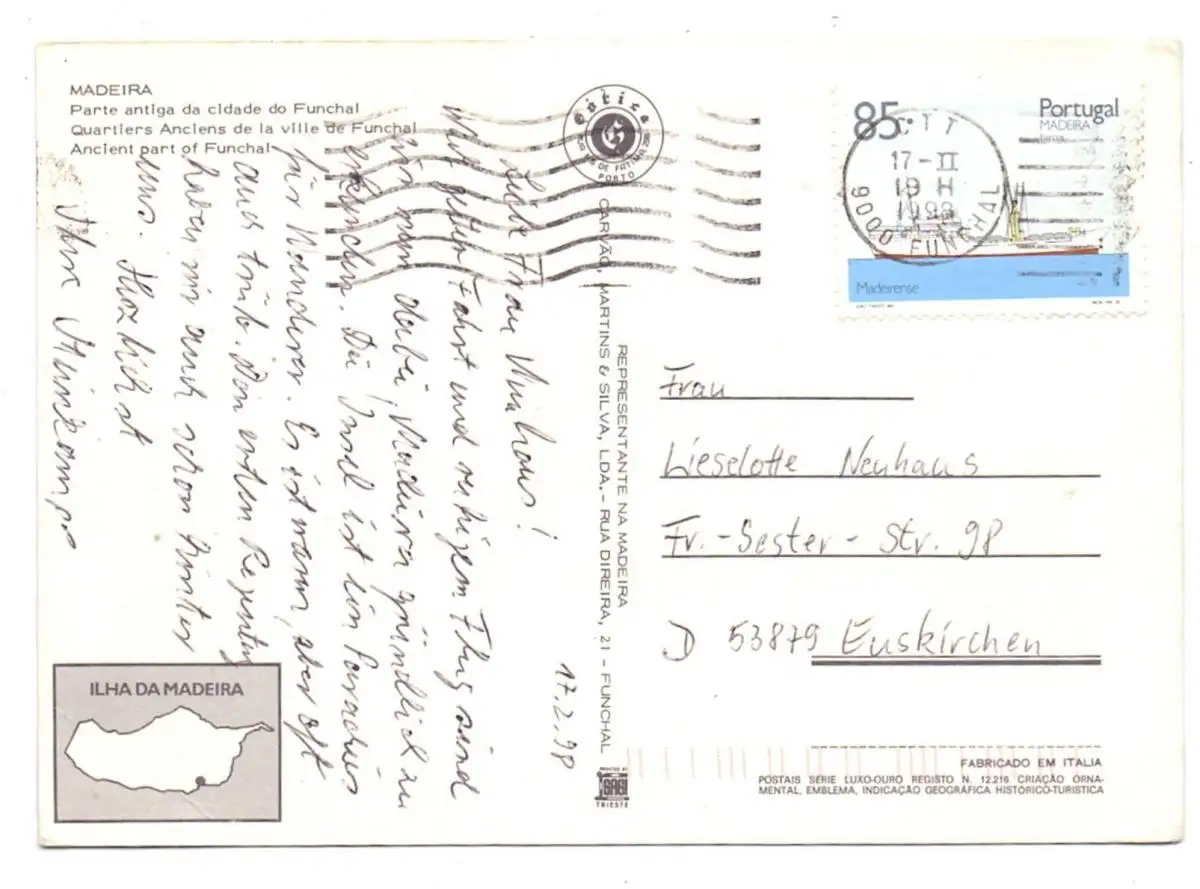 MADEIRA
Parte antiga da cidade do Funchal
Quartiers Anciens de la ville de Funchal
Ancient part of Funchal
17.2.98
Liebe Frau Neuhaus!
Nach guter Fahrt und ruhigem Flug sind
wir nun dabei, Madeira gründlich zu
erforschen. Die Insel ist ein Paradies
für Wanderer. Es ist warm, aber oft
auch trüb. Den ersten Regentag
haben wir auch schon hinter
uns. Herzlichst
Ihre
Gótica
PORTO
REPRESENTANTE NA MADEIRA
CARVÃO, MARTINS & SILVA, LDA. - RUA DIREIRA, 21 - FUNCHAL
PRINTED BY
SAGI
TRIESTE
85.
Portugal
MADEIRA
Madeirense
CTT
17-II
19 H
1998
9000 FUNCHAL
Frau
Lieselotte Neuhaus
Fr.-Sester-Str. 98
D 53879 Euskirchen
ILHA DA MADEIRA
FABRICADO EM ITALIA
POSTAIS SÉRIE LUXO-OURO REGISTO N. 12.216 CRIAÇÃO ORNA-
MENTAL, EMBLEMA, INDICAÇÃO GEOGRÁFICA HISTÓRICO-TURISTICA